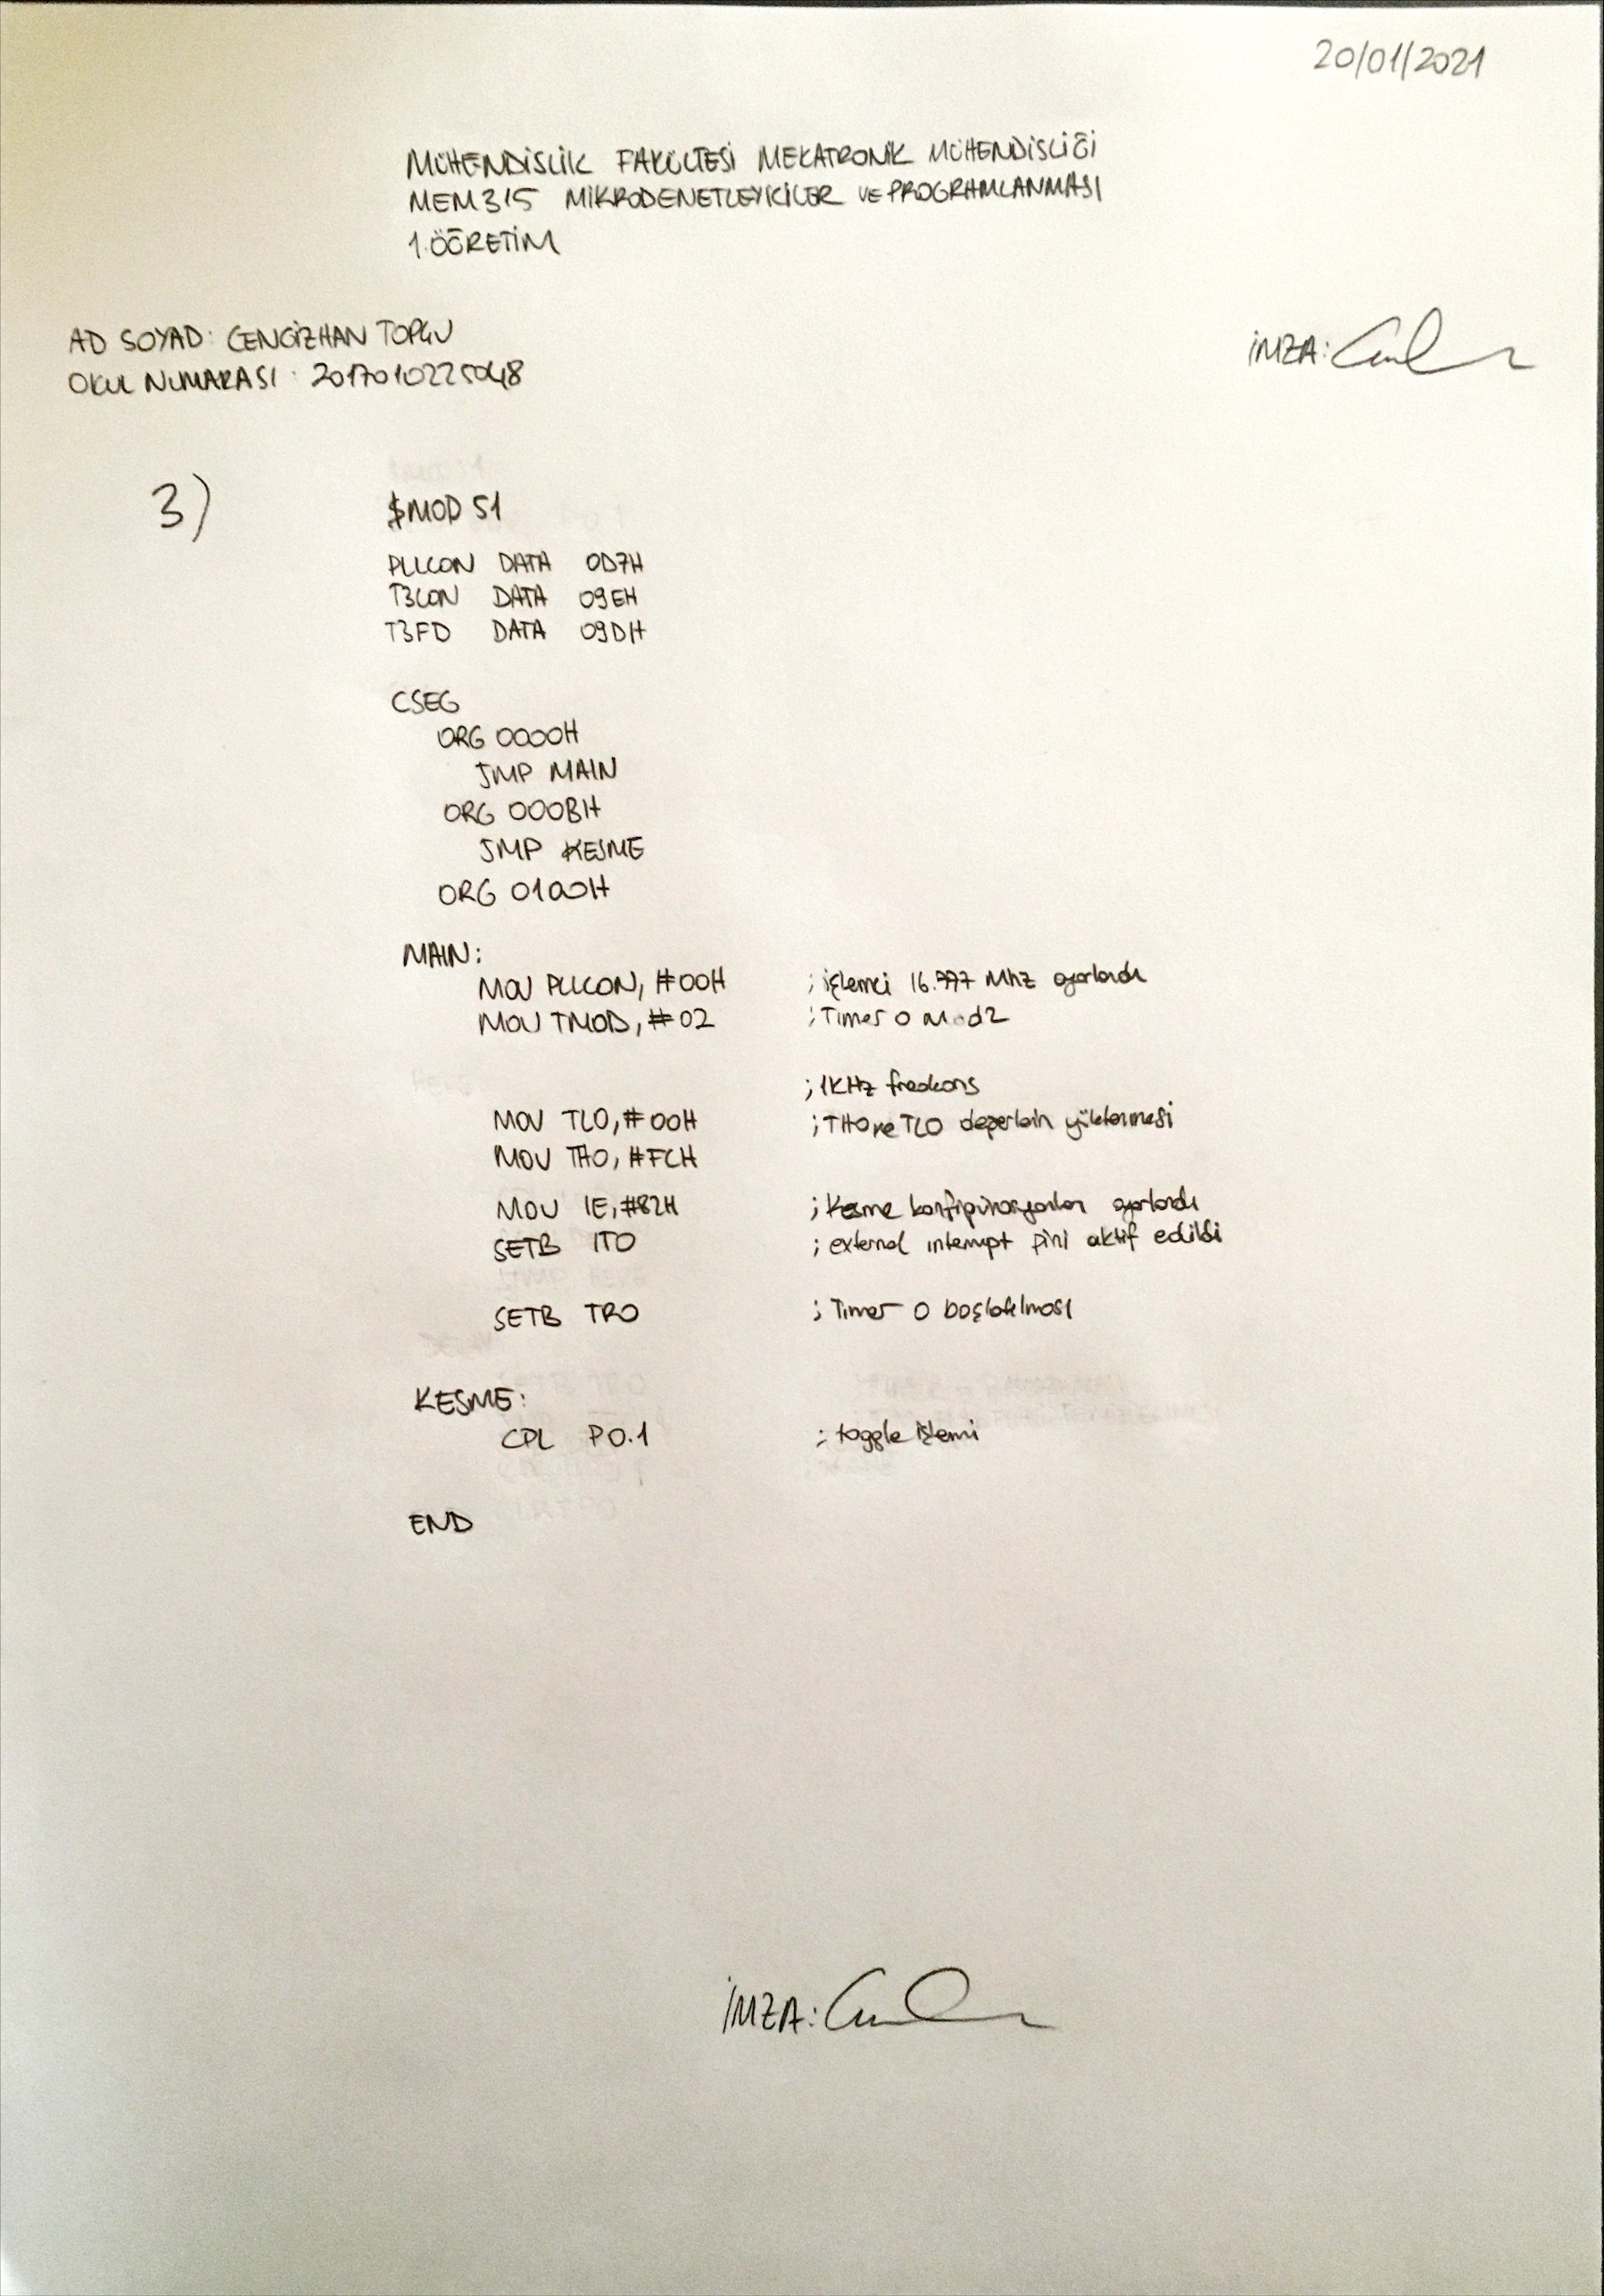 20/01/2021
MÜHENDİSLİK FAKÜLTESİ MEKATRONİK MÜHENDİSLİĞİ
MEM315 MİKRODENETLEYİCİLER VE PROGRAMLANMASI
1.ÖĞRETİM
AD SOYAD: CENGİZHAN TOPÇU
OKUL NUMARASI: 2017010225048
İMZA:
3)
$MOD 51
PLLCON DATA 0D7H
T3CON DATA 09EH
T3FD DATA 09DH
CSEG
ORG 0000H
JMP MAIN
ORG 000BH
JMP KESME
ORG 0100H
MAIN:
MOV PLLCON, #00H ; işlemci 16.777 Mhz ayarlandı
MOV TMOD, #02 ; Timer 0 Mod2
; 1KHz frekans
MOV TL0, #00H ; TH0 ve TL0 değerlerin yüklenmesi
MOV TH0, #FCH
MOV IE, #82H ; Kesme konfigürasyonları ayarlandı
SETB IT0 ; external interrupt pini aktif edildi
SETB TR0 ; Timer 0 başlatılması
KESME:
CPL P0.1 ; toggle işlemi
END
İMZA: